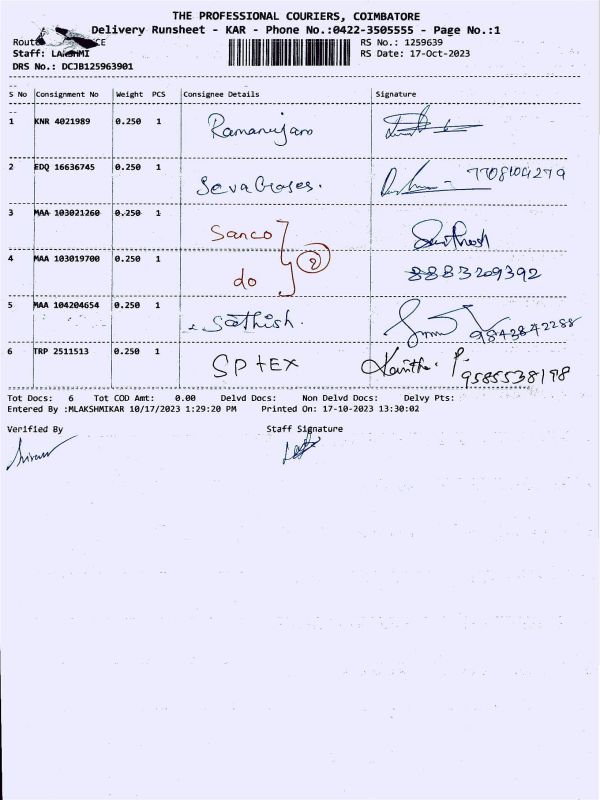 THE PROFESSIONAL COURIERS, COIMBATORE
Delivery Runsheet - KAR - Phone No.:0422-3505555 - Page No.:1
RS No.: 1259639
Staff: LAKSHMI RS Date: 17-Oct-2023
DRS No.: DCJB125963901
S No Consignment No Weight PCS Consignee Details Signature
1 KNR 4021989 0.250 1 Ramanujam
2 EDQ 16636745 0.250 1 Seva Groses. 7708104279
3 MAA 103021260 0.250 1 Sanco Santhosh
4 MAA 103019700 0.250 1 do 2 8883209392
5 MAA 104204654 0.250 1 Sathish. 9843842288
6 TRP 2511513 0.250 1 SPTEX Kanitha. P. 9585538198
Tot Docs: 6 Tot COD Amt: 0.00 Delvd Docs: Non Delvd Docs: Delvy Pts:
Entered By :MLAKSHMIKAR 10/17/2023 1:29:20 PM Printed On: 17-10-2023 13:30:02
Verified By Staff Signature